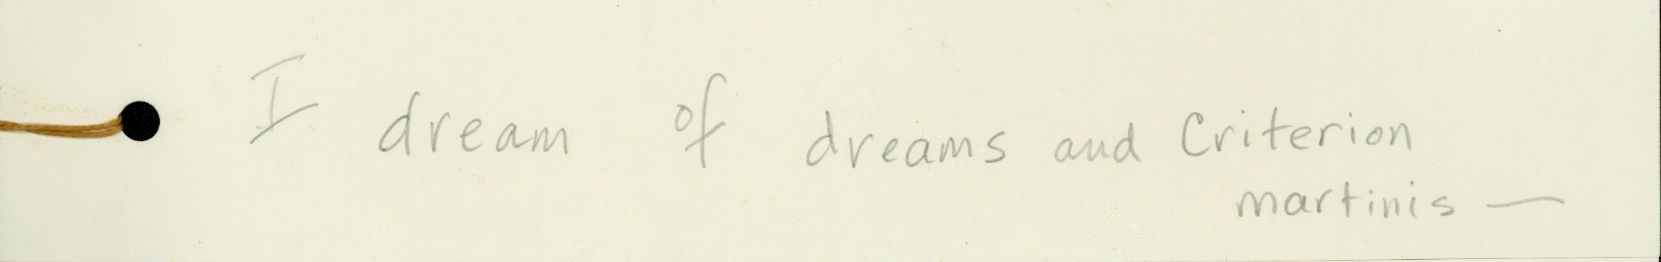 I dream of dreams and Criterion
martinis —